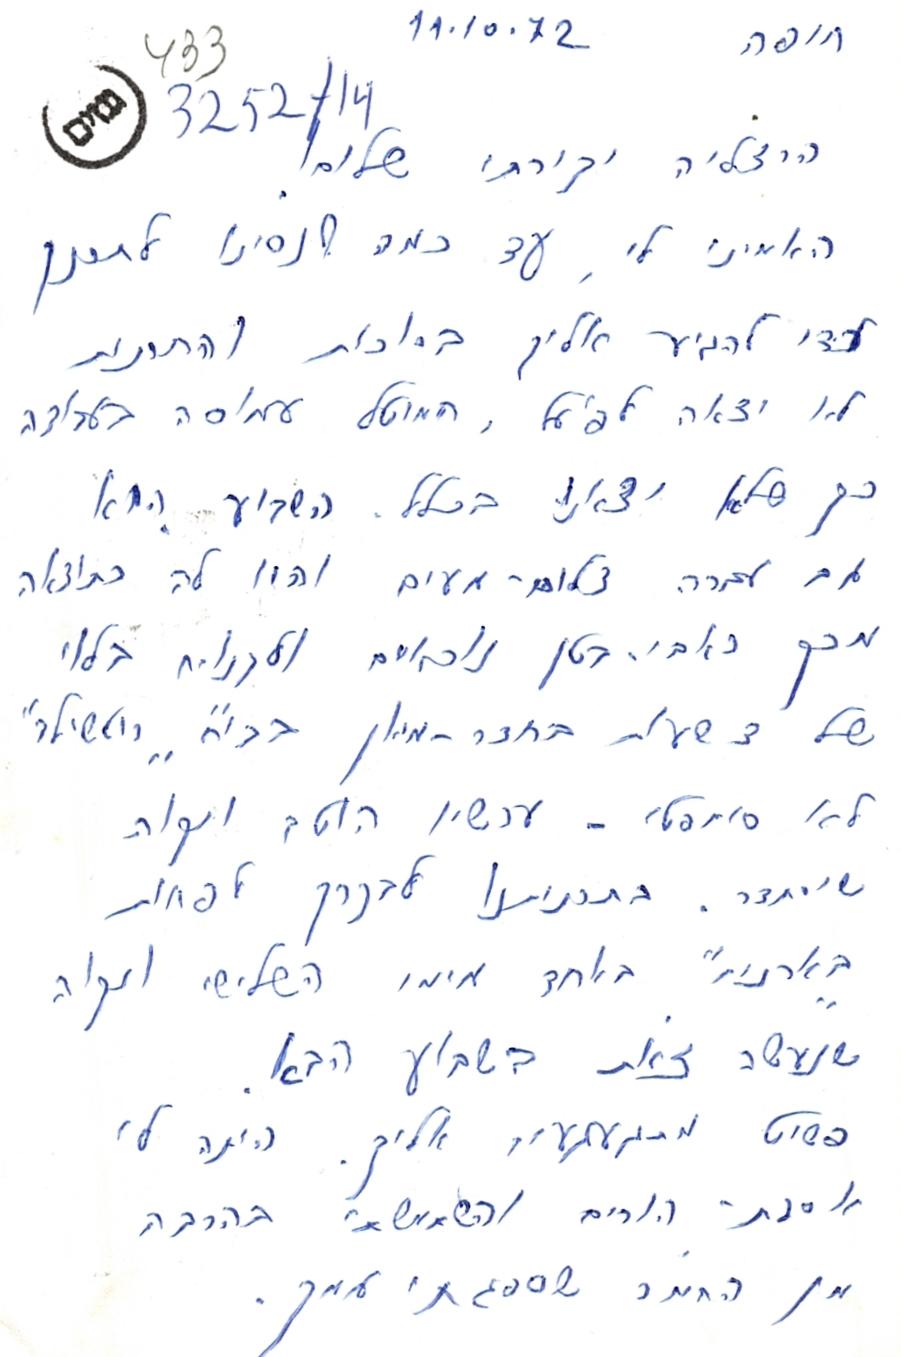 חיפה 11.10.72
433
3252/14
הרצליה יקירתי שלום!
האמיני לי, עד כמה שנסינו לתכנן
כדי להגיע אליך בסוכות והתכנית
לא יצאה לפועל, המוטל עמוסה בעבודה
כך שלא יצאנו בכלל. השבוע
אם עברה צלום-מעים והיו לה כתוצאה
מכך כאבי-בטן נוראיים ולקנוח בלוי
של 3 שעות בחדר-מיון בבי"ח "רוטשילד"
לא סימפטי - עכשיו הוטב ונקוה
שיסתדר. בתכניתנו לבקרך לפחות
ב"ארנית" באחד מימי השלישי ונקוה
שנעשה זאת בשבוע הבא.
פשוט מתגעגעים אליך. היתה לי
אספת-הורים והשתמשתי בהרבה
מן החומר שספגתי ממך.